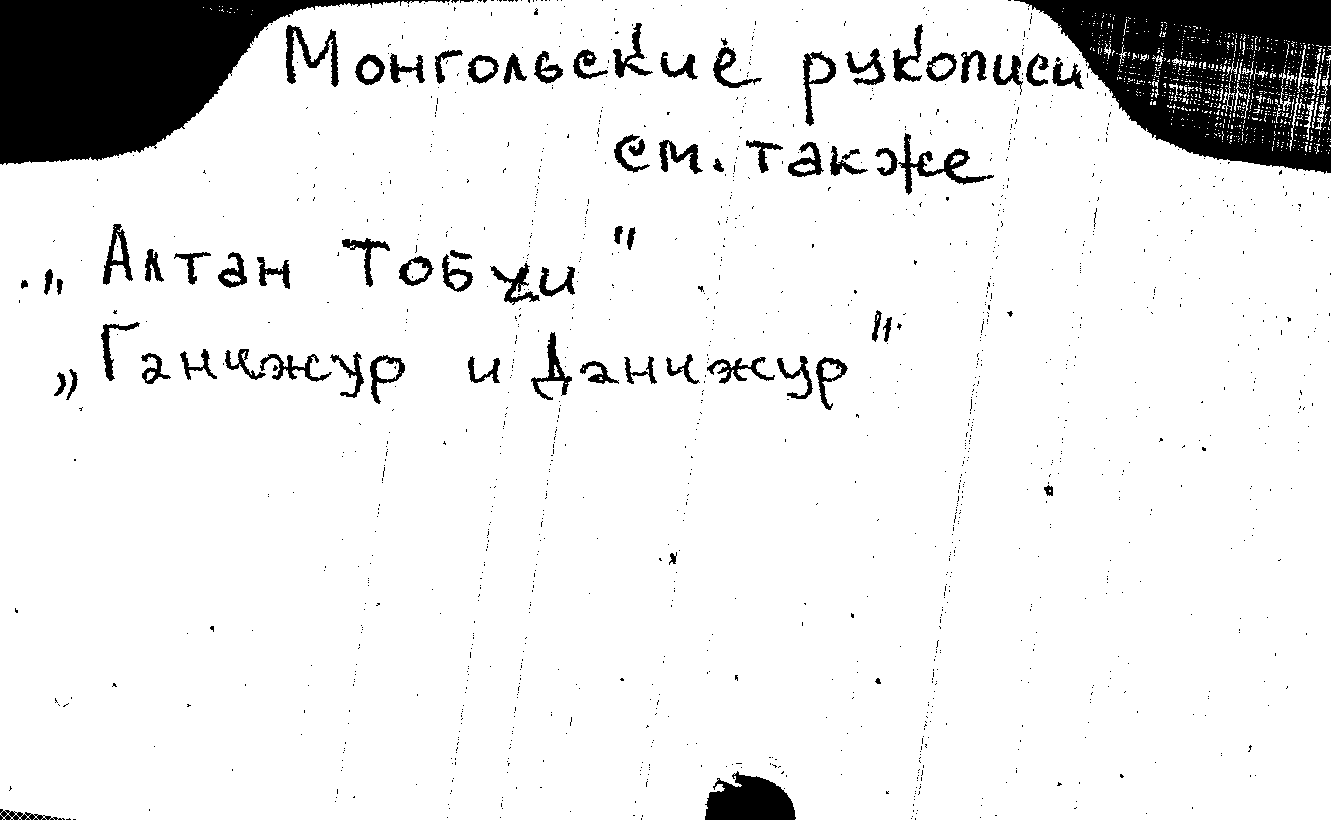 Монгольские рукописи
см. также
„Алтан Тобчи"
„Ганчжур и Данчжур"